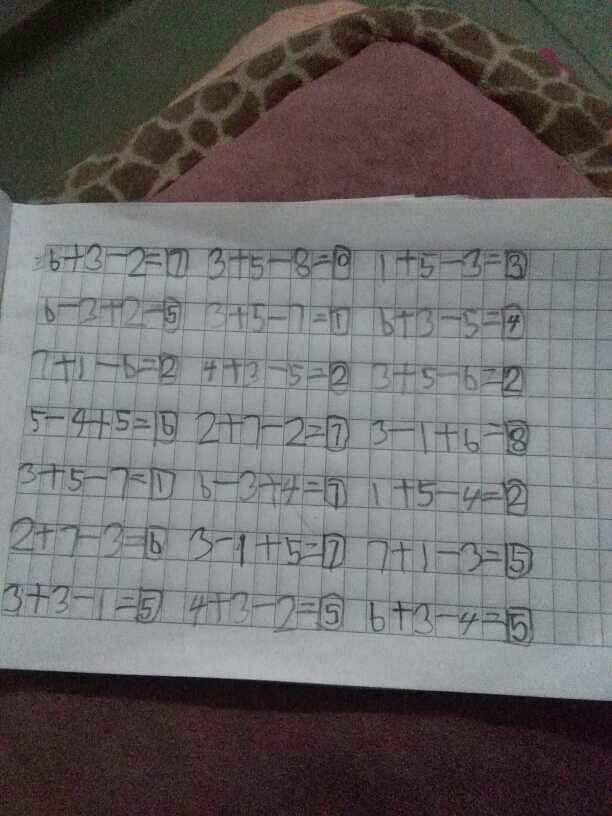 6+3-2=7 3+5-8=0 1+5-3=3
6-3+2=5 3+5-7=1 6+3-5=4
7+1-6=2 4+3-5=2 3+5-6=2
5-4+5=6 2+7-2=7 3-1+6=8
3+5-7=1 6-3+4=7 1+5-4=2
2+7-3=6 3-1+5=7 7+1-3=5
3+3-1=5 4+3-2=5 6+3-4=5